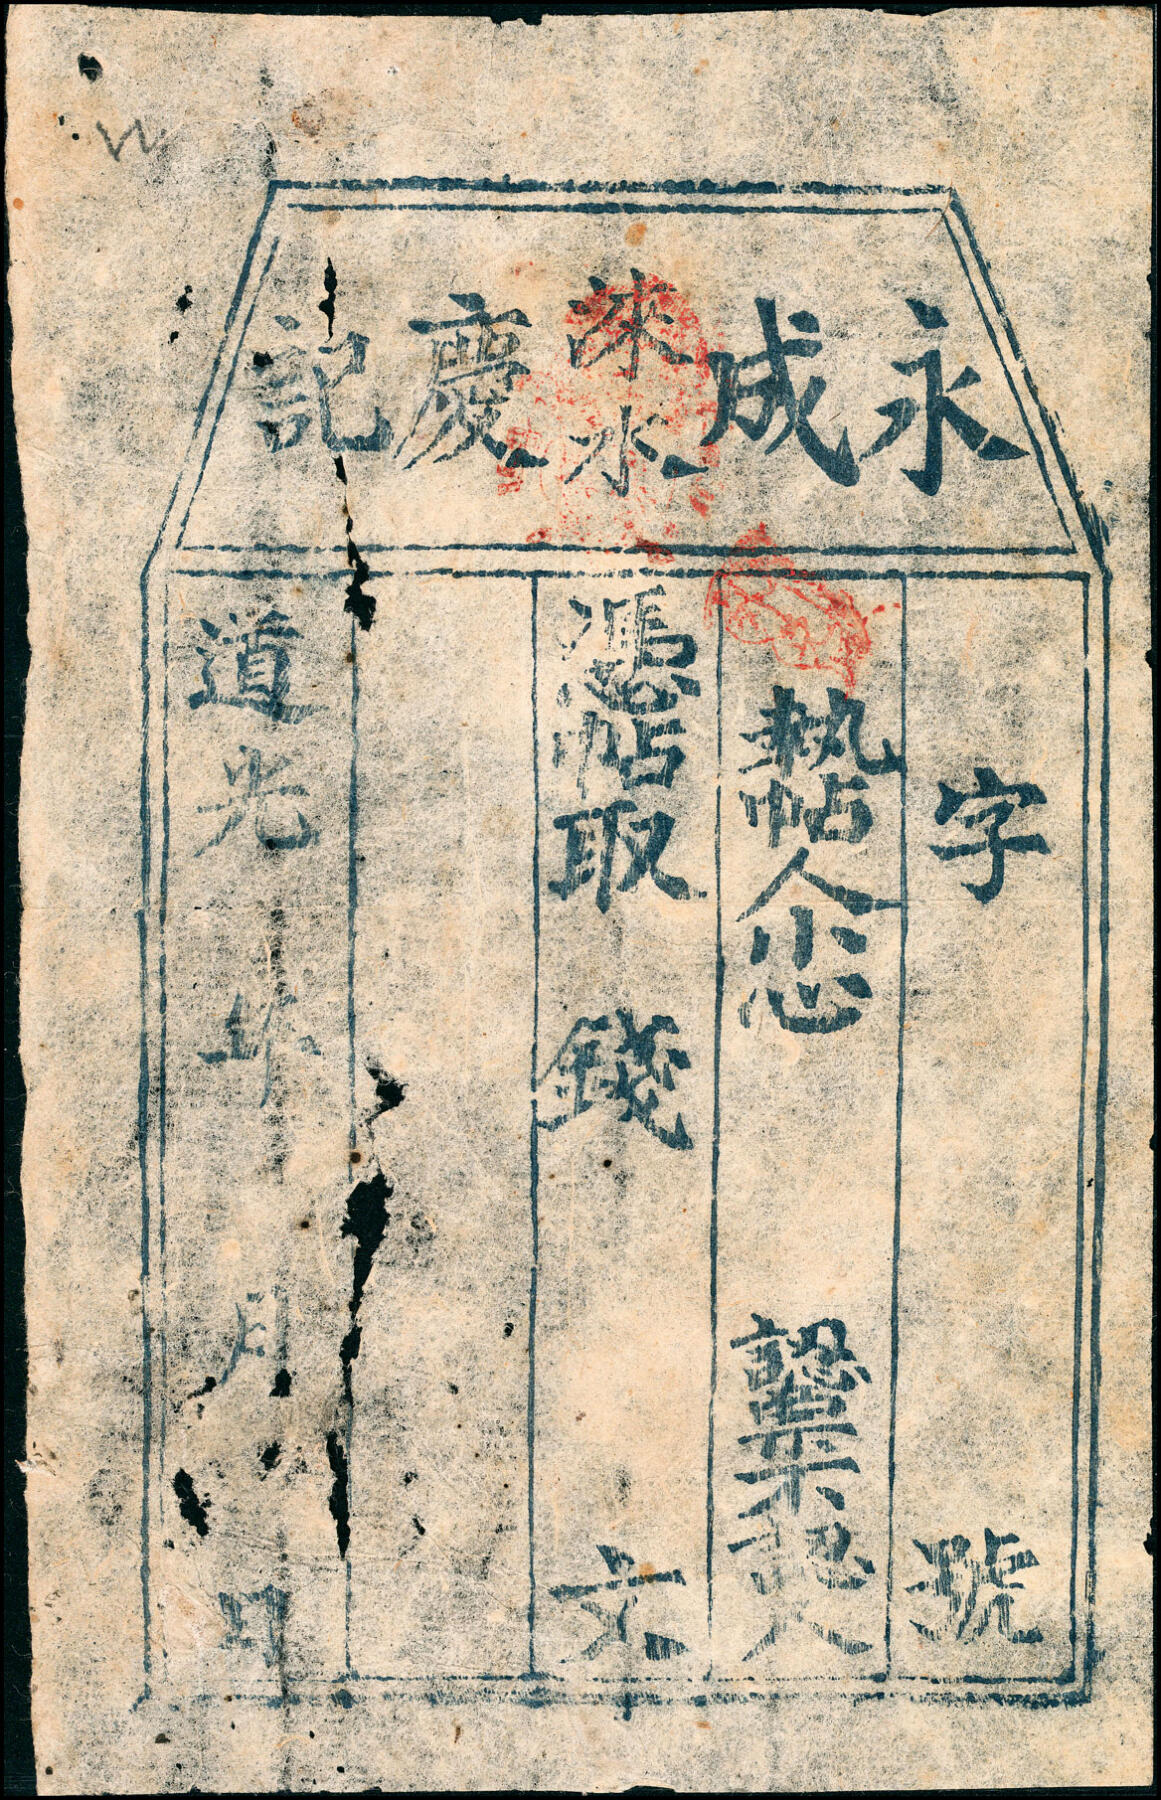 永成淶水慶記
字號
執帖人小心認票不認人
憑帖取錢文
道光年月日